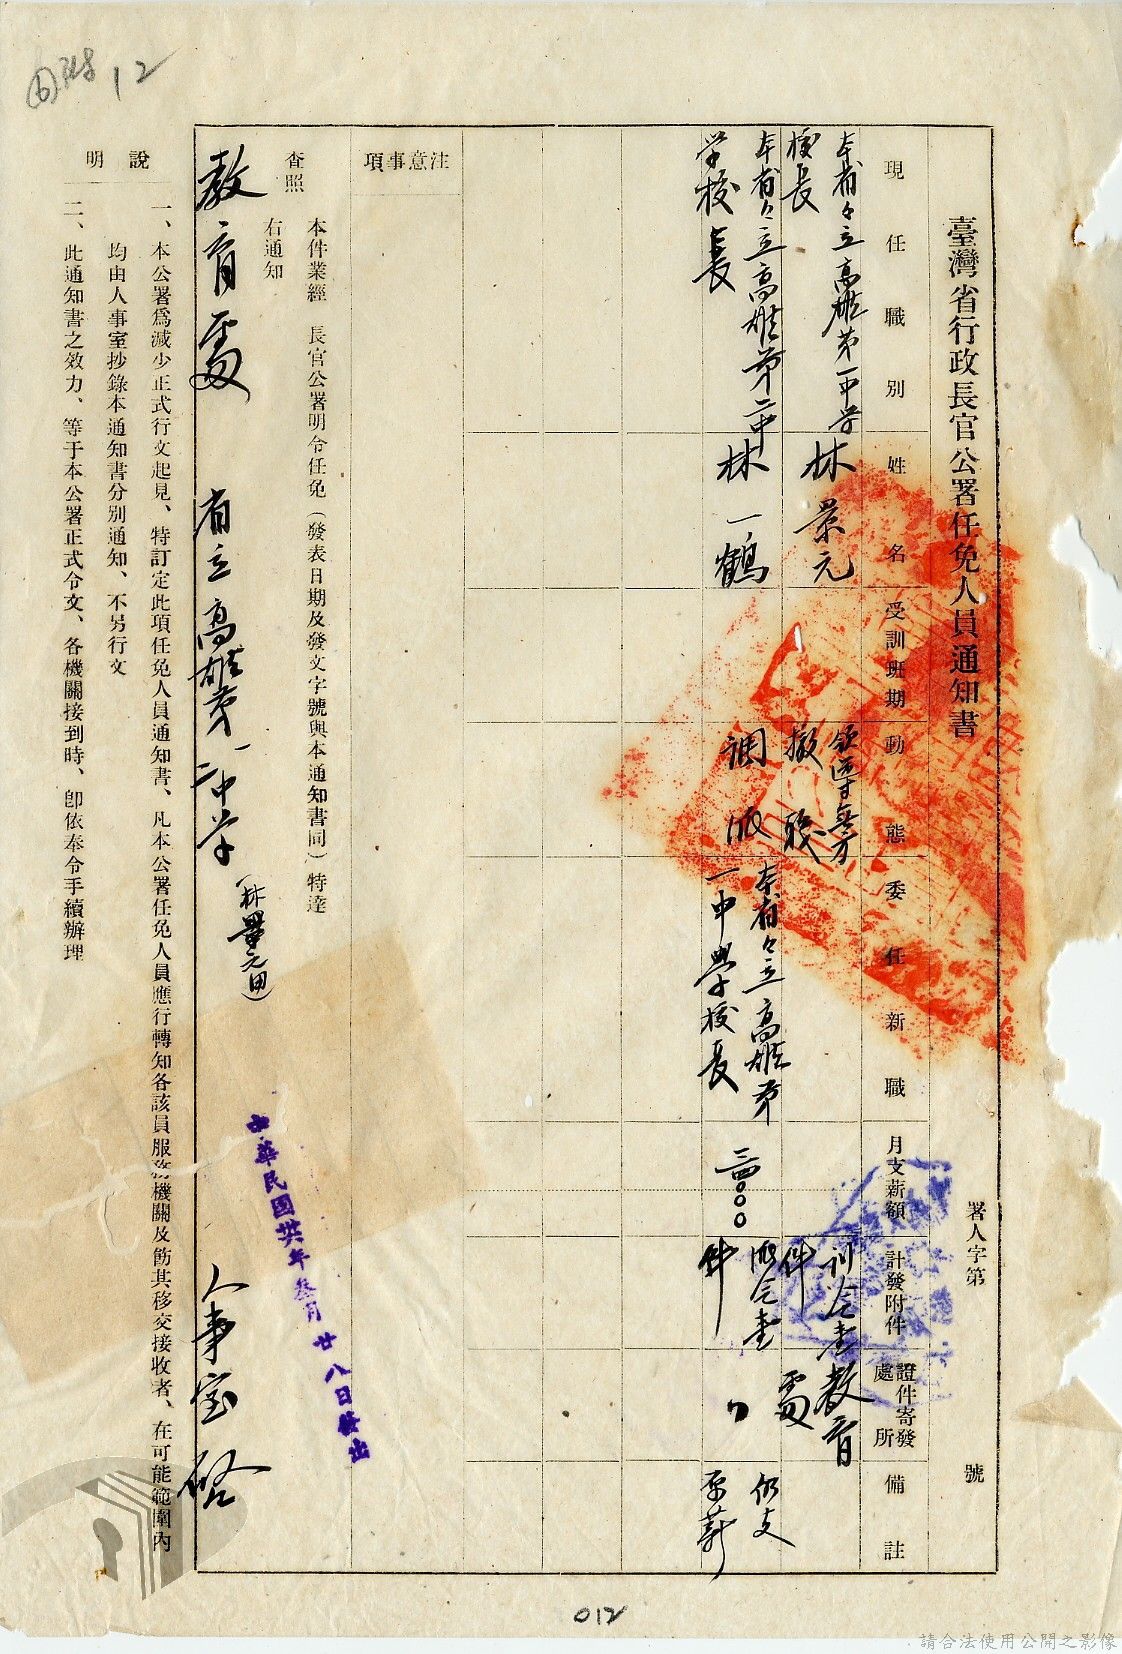 臺灣省行政長官公署任免人員通知書
署人字第　　號
現任職別
姓名
受訓班期
動態
委任新職
月支薪額
計發附件
證件寄發處所
備註
本省々立高雄第一中学
校長
林景元
領導無方
撤職
訓令壹
件
教育
處
本省々立高雄第二中
学校長
林一鶴
調派
本省々立高雄第
一中學校長
三四〇〇〇
派令壹
件
仍支
原薪
注意事項
本件業經　長官公署明令任免（發表日期及發文字號與本通知書同）特達
查照
右通知
教育處
省立高雄第一二中学
人事室啓
中華民國卅六年叁月廿八日發出
說明
一、本公署爲減少正式行文起見、特訂定此項任免人員通知書、凡本公署任免人員應行轉知各該員服務機關及飭其移交接收者、在可能範圍內
均由人事室抄錄本通知書分別通知、不另行文
二、此通知書之效力、等于本公署正式令文、各機關接到時、卽依奉令手續辦理
12
012
請合法使用公開之影像